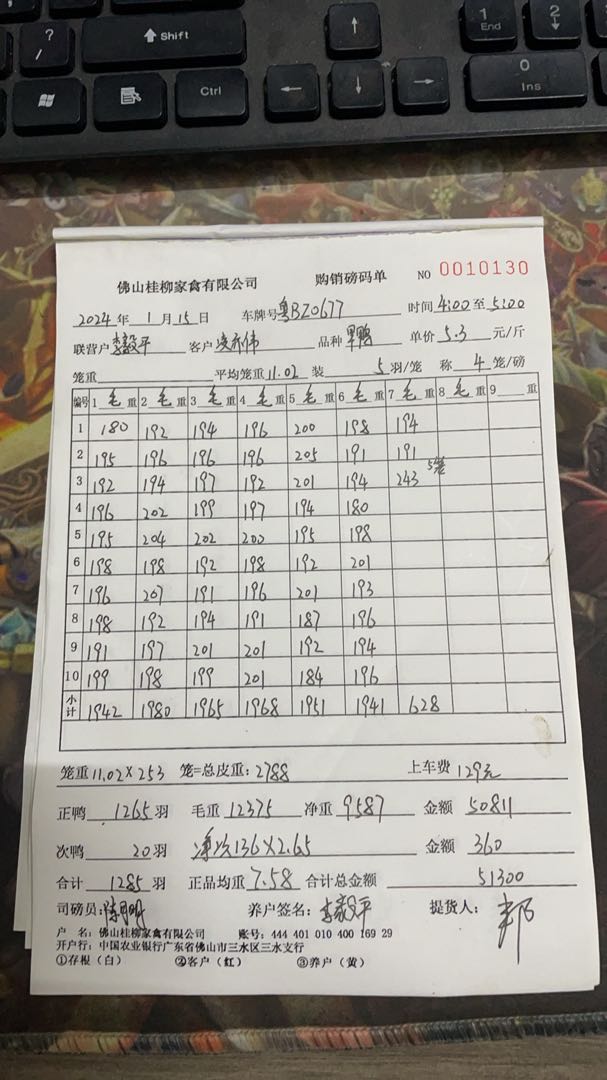 ?
/
Shift
Ctrl
1
End
2
0
Ins
佛山桂柳家禽有限公司 购销磅码单 NO 0010130
2024年 1月 15日 车牌号 粤BZ0677 时间 4:00 至 5:00
联营户 客户 品种 单价 5.3 元/斤
笼重 平均笼重 11.02 装 5 羽/笼 称 4 笼/磅
编号 1 毛 重 2 毛 重 3 毛 重 4 毛 重 5 毛 重 6 毛 重 7 毛 重 8 毛 重 9 重
1 180 192 194 196 200 198 194
2 195 196 196 196 205 191 191
3 192 194 197 192 201 194 243 5笼
4 196 202 199 197 194 180
5 195 204 202 200 195 198
6 198 198 192 198 192 201
7 196 207 191 196 201 193
8 198 192 194 191 187 196
9 191 197 201 201 192 194
10 199 198 199 201 184 196
小计 1942 1980 1965 1968 1951 1941 628
笼重 11.02 × 253 笼=总皮重: 2788 上车费 129元
正鸭 1265 羽 毛重 12375 净重 9587 金额 50811
次鸭 20 羽 136×2.65 金额 360
合计 1285 羽 正品均重 7.58 合计总金额 51300
司磅员: 养户签名: 提货人:
户 名: 佛山桂柳家禽有限公司 账号: 444 401 010 400 169 29
开户行: 中国农业银行广东省佛山市三水区三水支行
①存根(白) ②客户(红) ③养户(黄)